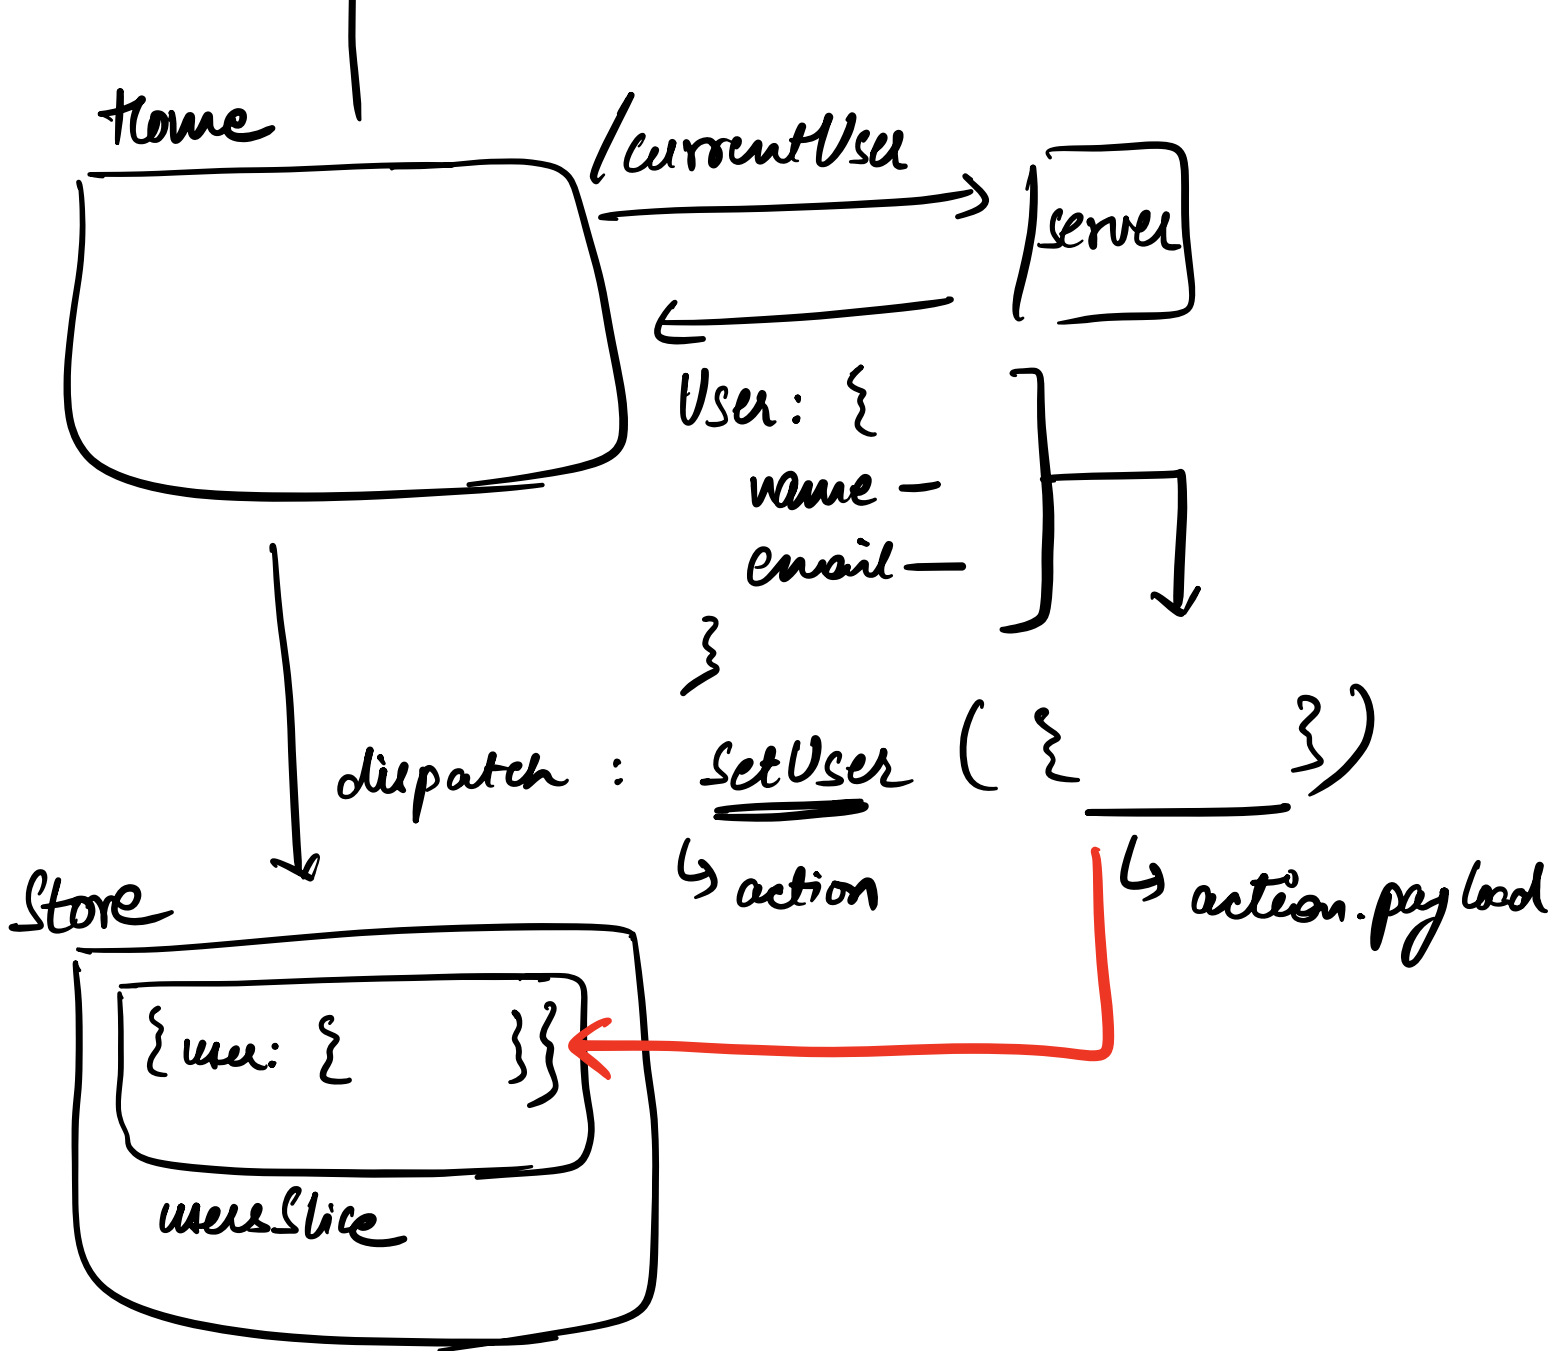 Home
/currentUser
server
User: {
name —
email —
}
dispatch : setUser ({ })
action
action.payload
Store
{ user: { }}
usersSlice